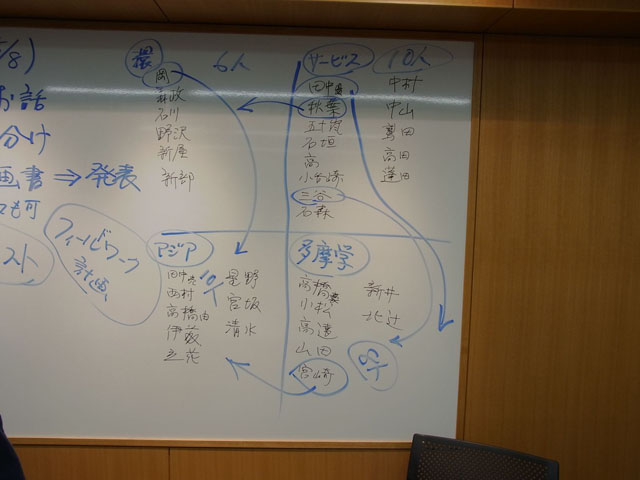 /8)
お話
分け
画書 ⇒ 発表
も可
スト
フィールドワーク
計画
環 6人
岡
森政
石川
野沢
新屋
新部
サービス 10人
田中
秋葉
五十嵐
石垣
高
小谷崎
三谷
石森
中村
中山
高田
蓮田
アジア
田中 10人
西村
高橋由
伊藪
立花
星野
宮坂
清水
多摩学
高橋
小松
高遠
山田
宮崎
新井
北辻
8人